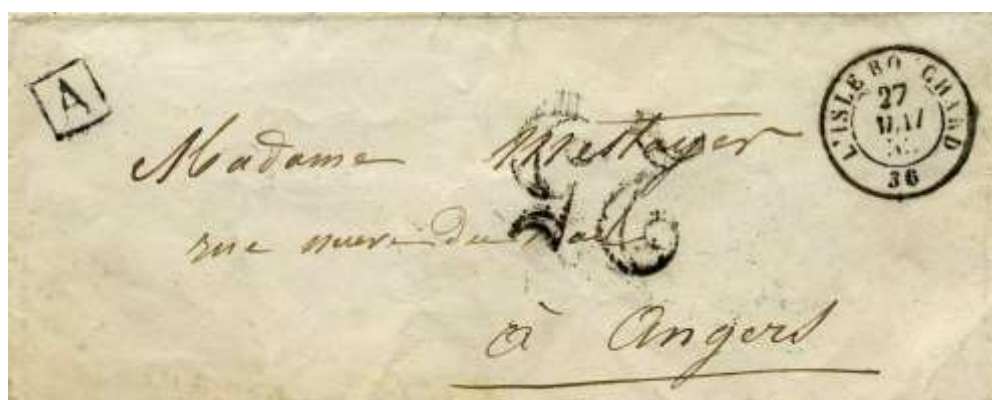 A
L'ISLE BOUCHARD
27
MAI
36
Madame Mettayer
25
rue du
à Angers